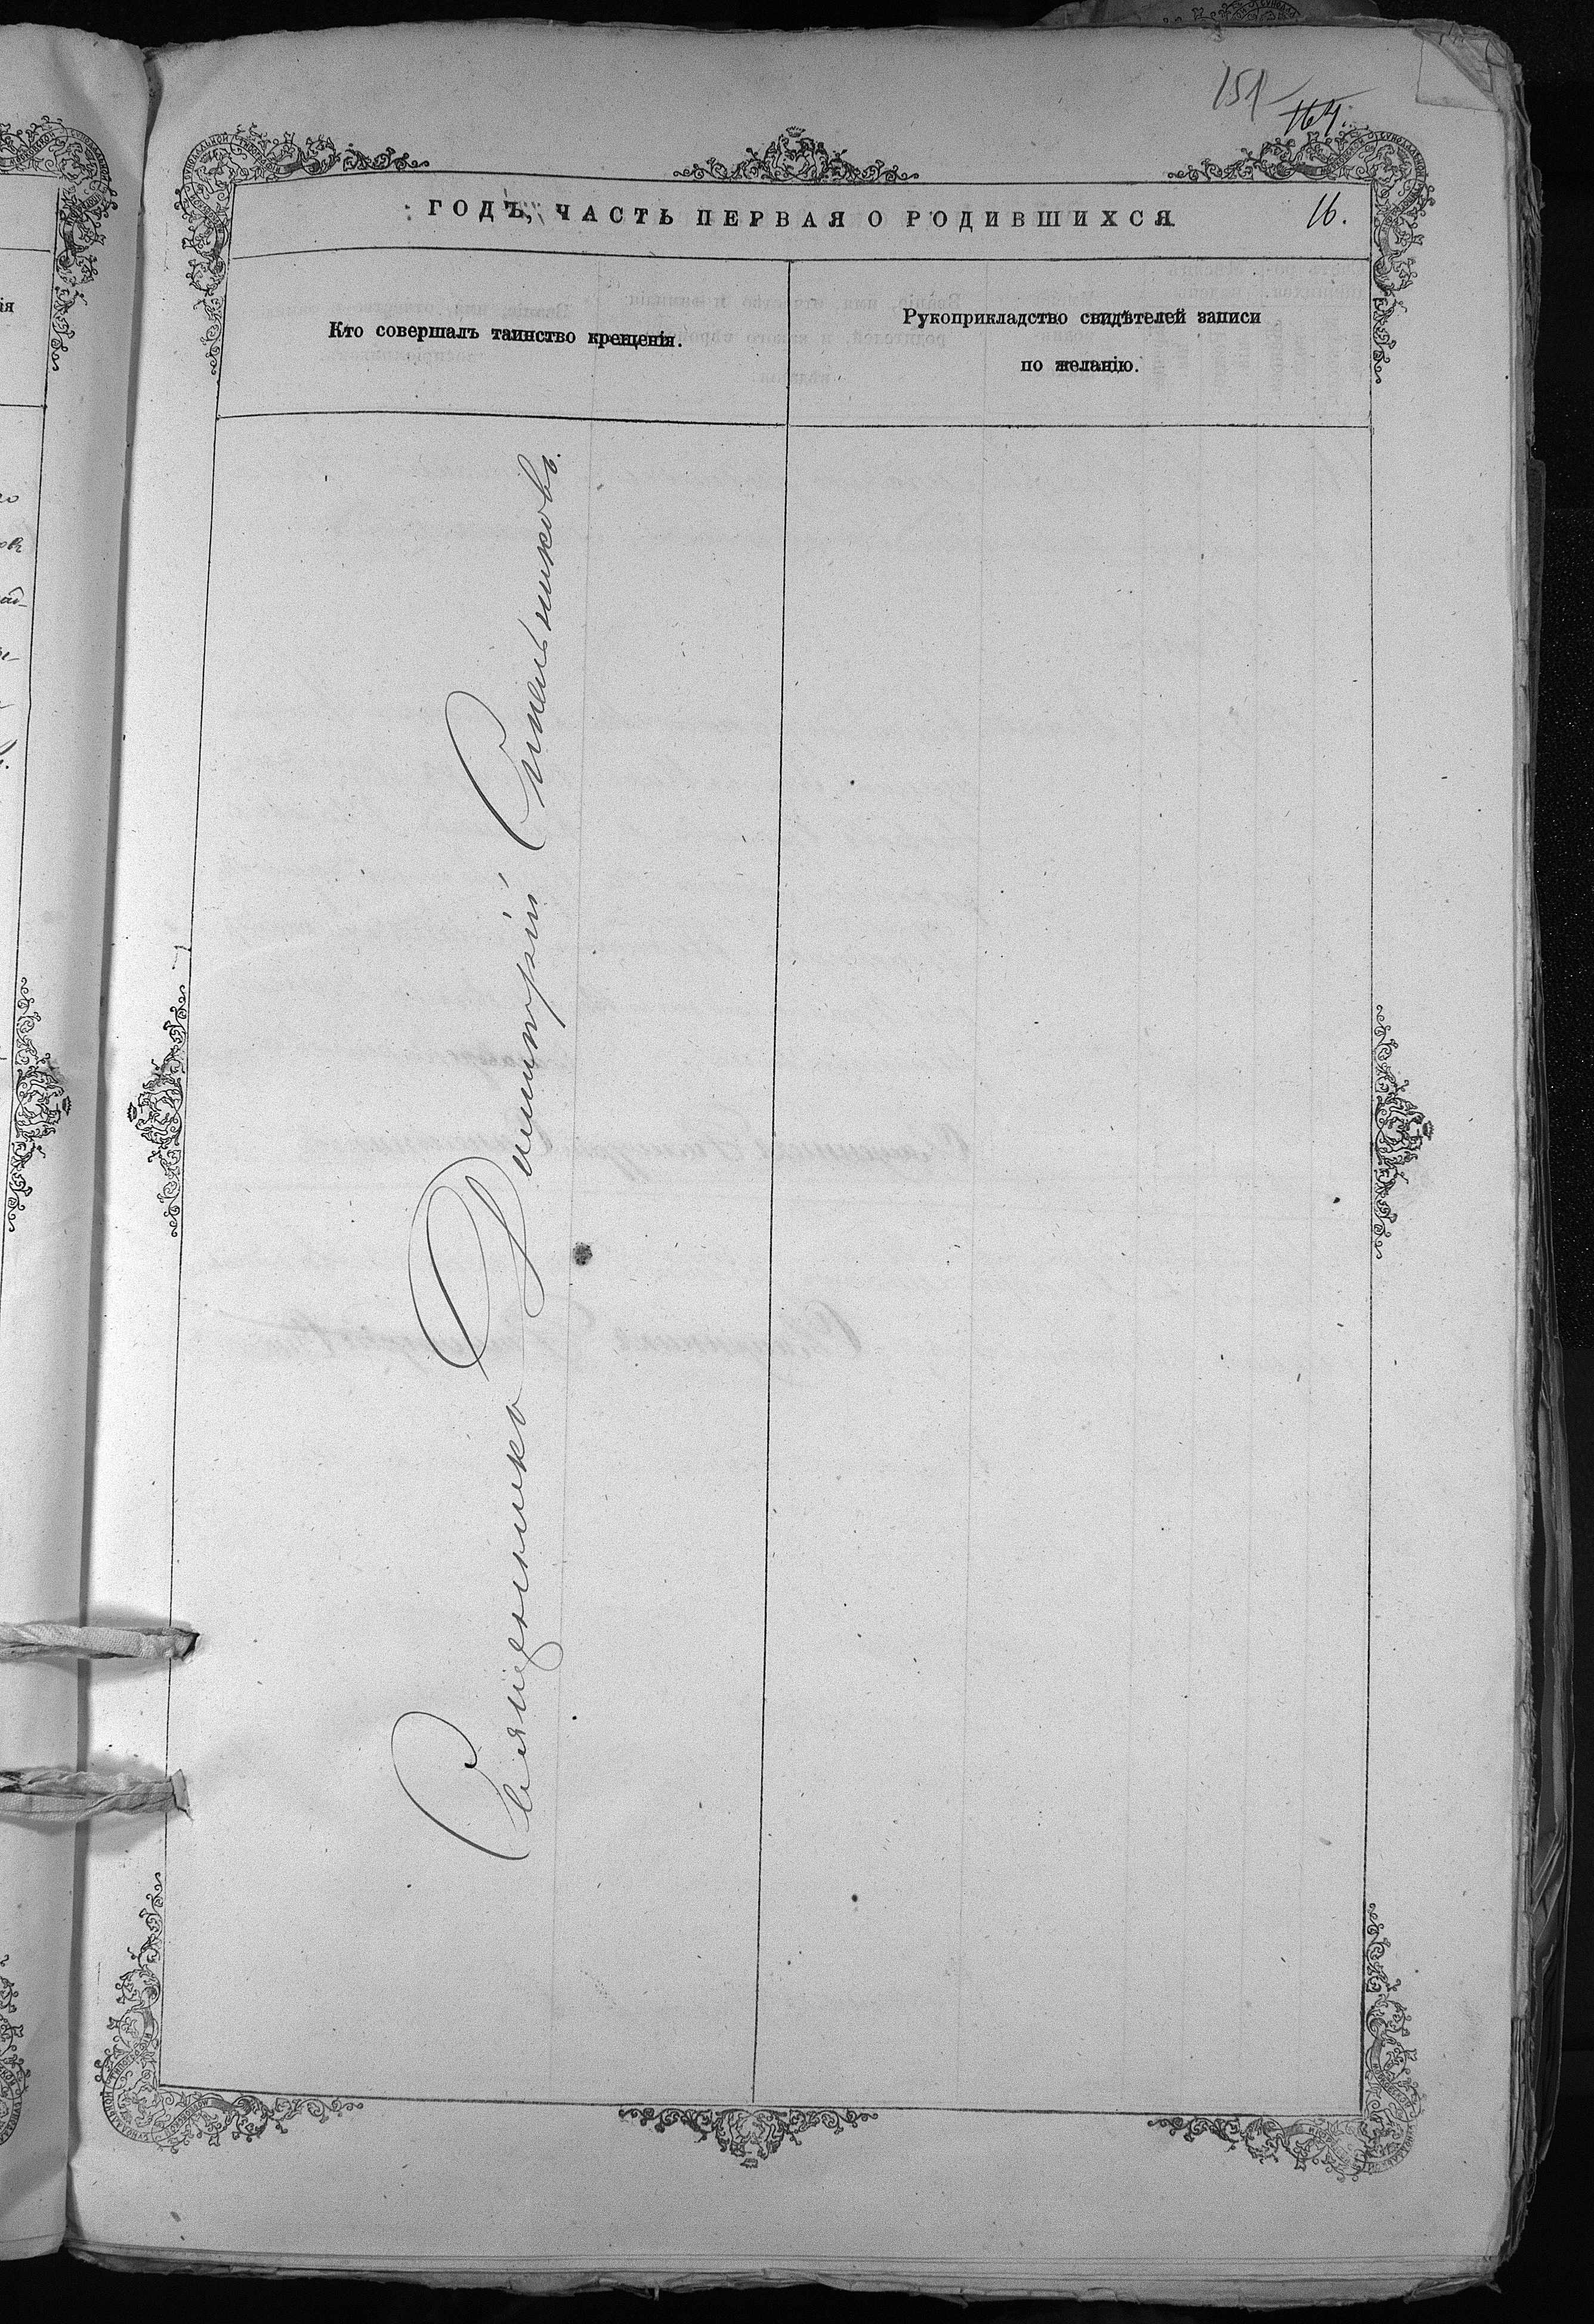 151
164.
ГОДЪ, ЧАСТЬ ПЕРВАЯ О РОДИВШИХСЯ
16.
Кто совершалъ таинство крещенія.
Рукоприкладство свидѣтелей записи
по желанію.
Священникъ Димитрій Синельниковъ.